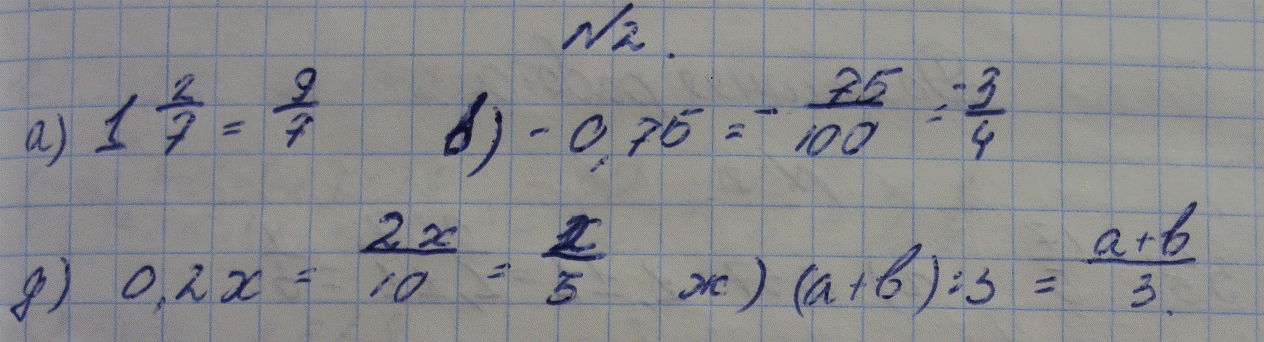 №2.
а) 1 2/7 = 9/7 в) - 0,75 = - 75/100 = -3/4
д) 0,2x = 2x/10 = x/5 ж) (a+b):3 = a+b/3.